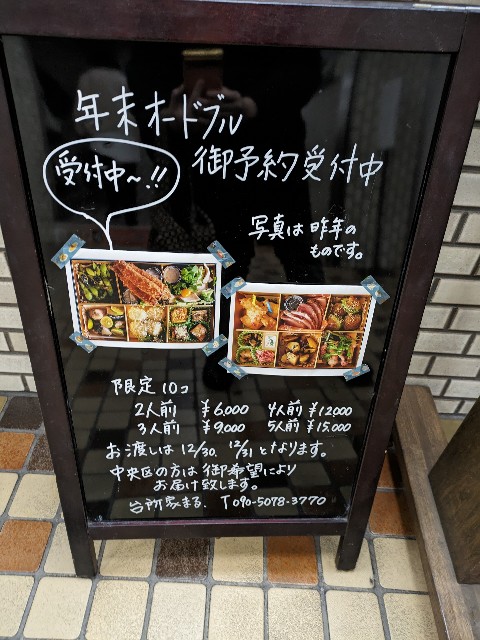 年末オードブル
御予約受付中
受付中〜!!
写真は昨年の
ものです。
限定10コ
2人前 ¥6,000 4人前 ¥12,000
3人前 ¥9,000 5人前 ¥15,000
お渡しは12/30、12/31となります。
中央区の方は御希望により
お届け致します。
台所家まる、T090-5078-3770